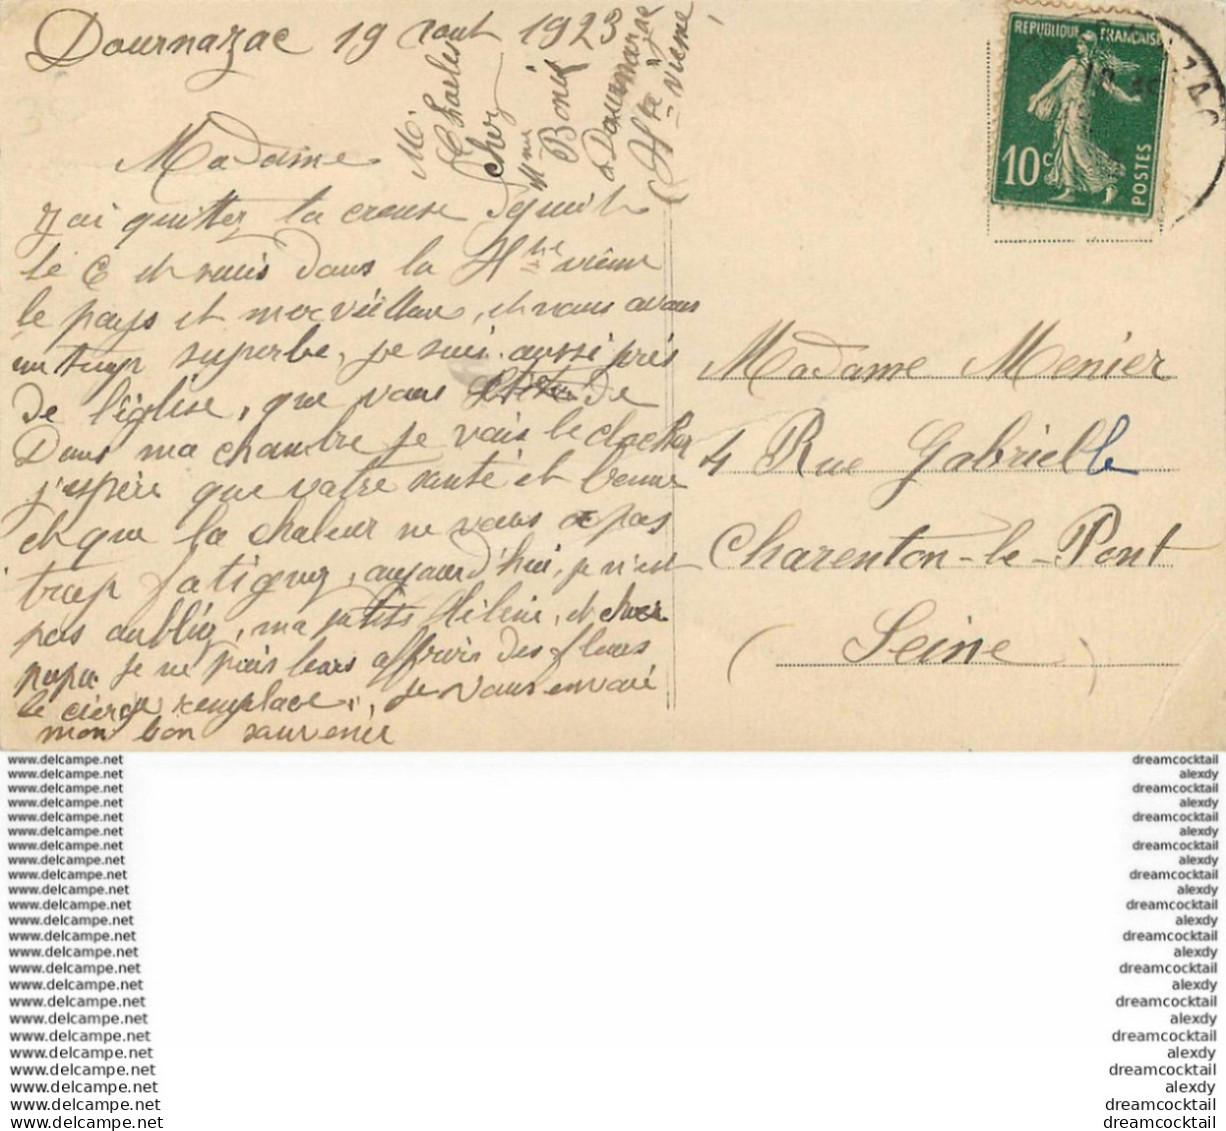 Dournazac 19 aout 1923
Mr Charles
chez
Mme Bonis
a Dournazac
Hte Viene
Madame
j'ai quittez la creuse depuit
le 6 et suis dans la Hte viene
le pays et merveilleux, et nous avons
un temp superbe, je suis aussi près
de l'église, que vous de
Dans ma chambre je vois le clocher
j'espère que votre santé et bonne
et que la chaleur ne vous a pas
trop fatiguez, aujourd'hui, je n'est
pas oubliez, ma petite Hélène, et cher
papa je ne puis leurs offrir des fleurs
le cierge remplace, je vous envoie
mon bon souvenir
REPUBLIQUE FRANÇAISE
10c
POSTES
ZAC
Madame Menier
4 Rue Gabrielle
Charenton-le-Pont
(Seine)
www.delcampe.net
www.delcampe.net
www.delcampe.net
www.delcampe.net
www.delcampe.net
www.delcampe.net
www.delcampe.net
www.delcampe.net
www.delcampe.net
www.delcampe.net
www.delcampe.net
www.delcampe.net
www.delcampe.net
www.delcampe.net
www.delcampe.net
www.delcampe.net
www.delcampe.net
www.delcampe.net
www.delcampe.net
www.delcampe.net
www.delcampe.net
www.delcampe.net
www.delcampe.net
www.delcampe.net
dreamcocktail
alexdy
dreamcocktail
alexdy
dreamcocktail
alexdy
dreamcocktail
alexdy
dreamcocktail
alexdy
dreamcocktail
alexdy
dreamcocktail
alexdy
dreamcocktail
alexdy
dreamcocktail
alexdy
dreamcocktail
alexdy
dreamcocktail
alexdy
dreamcocktail
dreamcocktail